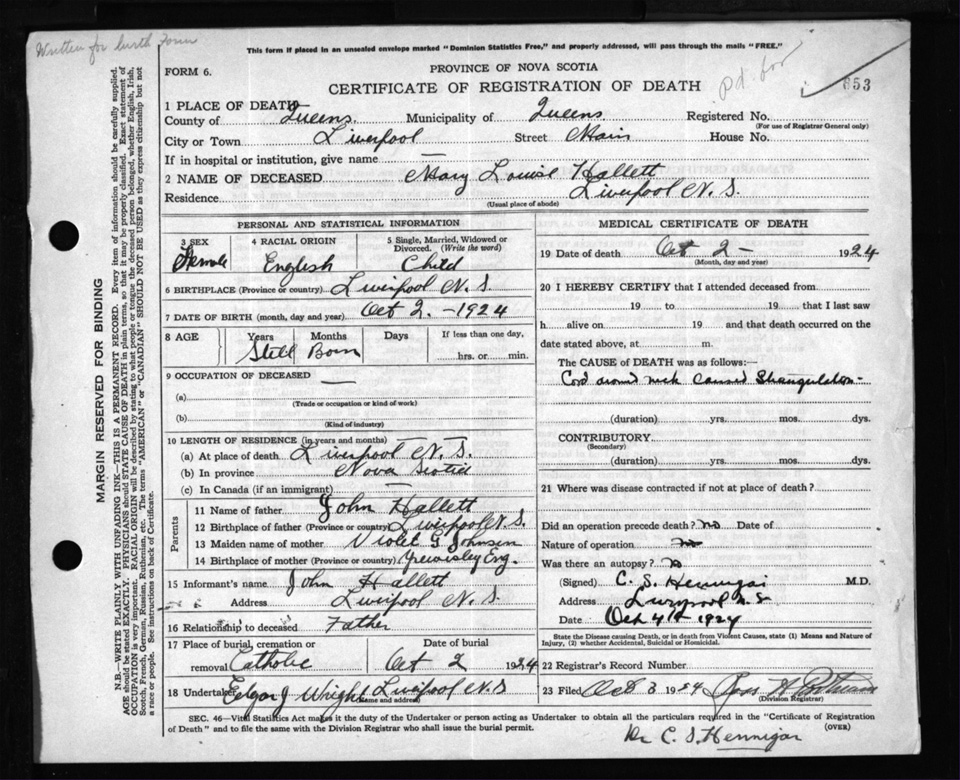 Written for birth Form
This form if placed in an unsealed envelope marked "Dominion Statistics Free," and properly addressed, will pass through the mails "FREE."
FORM 6.
PROVINCE OF NOVA SCOTIA
CERTIFICATE OF REGISTRATION OF DEATH
pd. for
653
1 PLACE OF DEATH
County of Queens. Municipality of Queens Registered No.
(For use of Registrar General only)
City or Town Liverpool Street Main House No.
If in hospital or institution, give name —
2 NAME OF DECEASED Mary Louise Hallett
Residence Liverpool N. S.
(Usual place of abode)
PERSONAL AND STATISTICAL INFORMATION
3 SEX Female
4 RACIAL ORIGIN English
5 Single, Married, Widowed or Divorced. (Write the word) Child
6 BIRTHPLACE (Province or country) Liverpool N. S.
7 DATE OF BIRTH (month, day and year) Oct 2. - 1924
8 AGE Years Months Days If less than one day,
Still Born hrs. or min.
9 OCCUPATION OF DECEASED —
(a)
(Trade or occupation or kind of work)
(b)
(Kind of industry)
10 LENGTH OF RESIDENCE (in years and months)
(a) At place of death Liverpool N. S.
(b) In province Nova Scotia
(c) In Canada (if an immigrant) —
Parents
11 Name of father John Hallett
12 Birthplace of father (Province or country) Liverpool N. S.
13 Maiden name of mother Violet G Johnson
14 Birthplace of mother (Province or country) Eng.
15 Informant's name John Hallett
Address Liverpool N. S.
16 Relationship to deceased Father
17 Place of burial, cremation or removal Catholic
Date of burial Oct 2 1924
18 Undertaker Edgar J Wright Liverpool N. S
(Name and address)
MEDICAL CERTIFICATE OF DEATH
19 Date of death Oct 2 - 1924
(Month, day and year)
20 I HEREBY CERTIFY that I attended deceased from
19 to 19 , that I last saw
h alive on 19 and that death occurred on the
date stated above, at m.
The CAUSE OF DEATH was as follows:—
Cord around neck caused Strangulation -
(duration) yrs. mos. dys.
CONTRIBUTORY
(Secondary)
(duration) yrs. mos. dys.
21 Where was disease contracted if not at place of death?
Did an operation precede death? no Date of
Nature of operation no
Was there an autopsy? no
(Signed) C. S. Hennigar M.D.
Address Liverpool N. S
Date Oct 4th 1924
State the Disease causing Death, or in death from Violent Causes, state (1) Means and Nature of Injury, (2) whether Accidental, Suicidal or Homicidal.
22 Registrar's Record Number
23 Filed Oct 3 1924
(Division Registrar)
SEC. 46—Vital Statistics Act makes it the duty of the Undertaker or person acting as Undertaker to obtain all the particulars required in the "Certificate of Registration
of Death" and to file the same with the Division Registrar who shall issue the burial permit.
(OVER)
Dr C. S. Hennigar
MARGIN RESERVED FOR BINDING
N.B.—WRITE PLAINLY WITH UNFADING INK—THIS IS A PERMANENT RECORD. Every item of information should be carefully supplied.
AGE should be stated EXACTLY. PHYSICIANS should STATE CAUSE OF DEATH in plain terms, so that it may be properly classified. Exact statement of
OCCUPATION is very important. RACIAL ORIGIN will be described by stating to what people or tongue the deceased person belonged, whether English, Irish,
Scotch, French, German, Russian, Ruthenian, etc. The terms "AMERICAN" or "CANADIAN" SHOULD NOT BE USED as they express citizenship but not
a race or people. See instructions on back of Certificate.